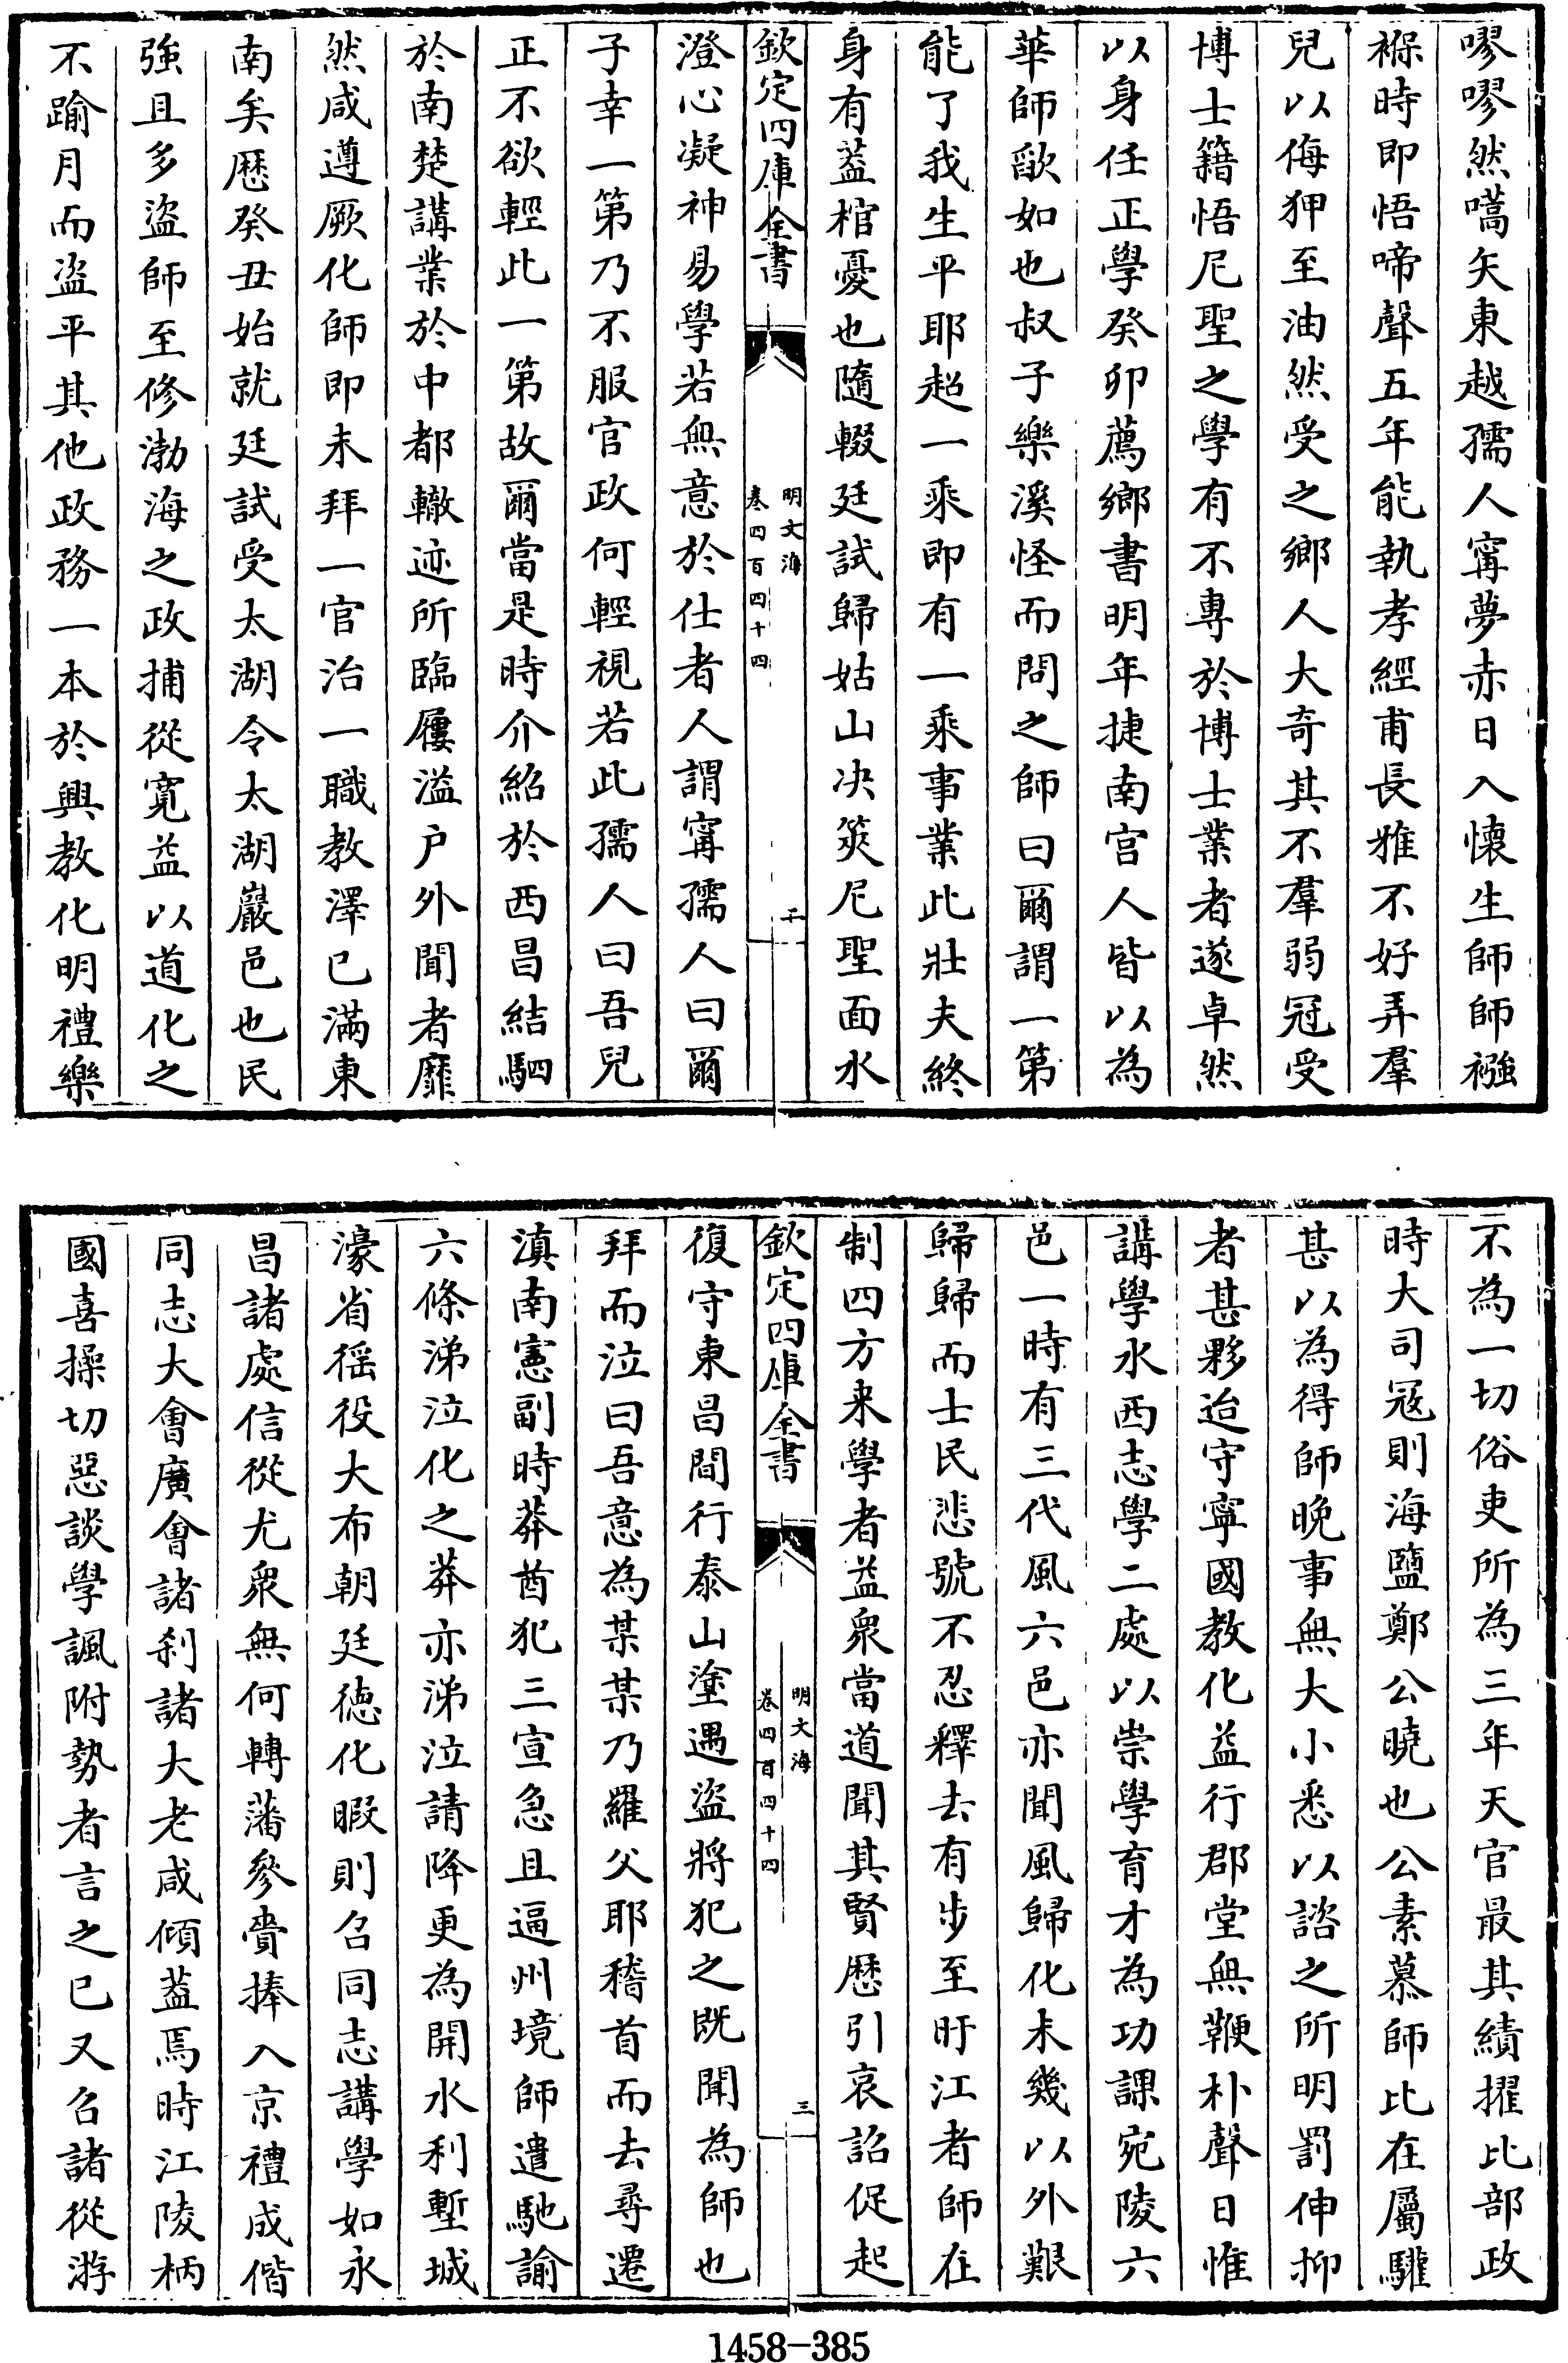 嘐嘐然嚆矢東越孺人寗夢赤日入懷生師師襁
褓時即悟啼聲五年能執孝經甫長雅不好弄羣
兒以侮狎至油然受之鄉人大奇其不羣弱冠受
博士籍悟尼聖之學有不專於博士業者遂卓然
以身任正學癸卯薦鄉書明年捷南宫人皆以為
華師歉如也叔子樂溪怪而問之師曰爾謂一第
能了我生平耶起一乘即有一乘事業此壯夫終
身有蓋棺憂也隨輟廷試歸姑山决筴尼聖面水
欽定四庫全書
明文海
卷四百四十四
澄心凝神易學若無意於仕者人謂寗孺人曰爾
子幸一第乃不服官政何輕視若此孺人曰吾兒
正不欲輕此一第故爾當是時介紹於西昌結駟
於南楚講業於中都轍迹所臨屨溢户外聞者靡
然咸遵厥化師即未拜一官治一職教澤已滿東
南矣歴癸丑始就廷試受太湖令太湖巖邑也民
強且多盜師至修渤海之政捕從寛益以道化之
不踰月而盜平其他政務一本於興教化明禮樂
不為一切俗吏所為三年天官最其績擢比部政
時大司冦則海鹽鄭公曉也公素慕師比在屬驩
甚以為得師晚事無大小悉以諮之所明罰伸抑
者甚夥迨守寧國教化益行郡堂無鞭朴聲日惟
講學水西志學二處以崇學育才為功課宛陵六
邑一時有三代風六邑亦聞風歸化未幾以外艱
歸歸而士民悲號不忍釋去有步至旴江者師在
制四方来學者益衆當道聞其賢歴引哀詔促起
欽定四庫全書
明文海
卷四百四十四
三
復守東昌間行泰山塗遇盜將犯之既聞為師也
拜而泣曰吾意為某某乃羅父耶稽首而去尋遷
滇南憲副時莽酋犯三宣急且逼州境師遣馳諭
六條涕泣化之莽亦涕泣請降更為開水利塹城
濠省徭役大布朝廷德化暇則召同志講學如永
昌諸處信從尤衆無何轉藩參賫捧入京禮成偕
同志大會廣會諸刹諸大老咸傾蓋焉時江陵柄
國喜操切惡談學諷附勢者言之已又召諸從游
1458-385